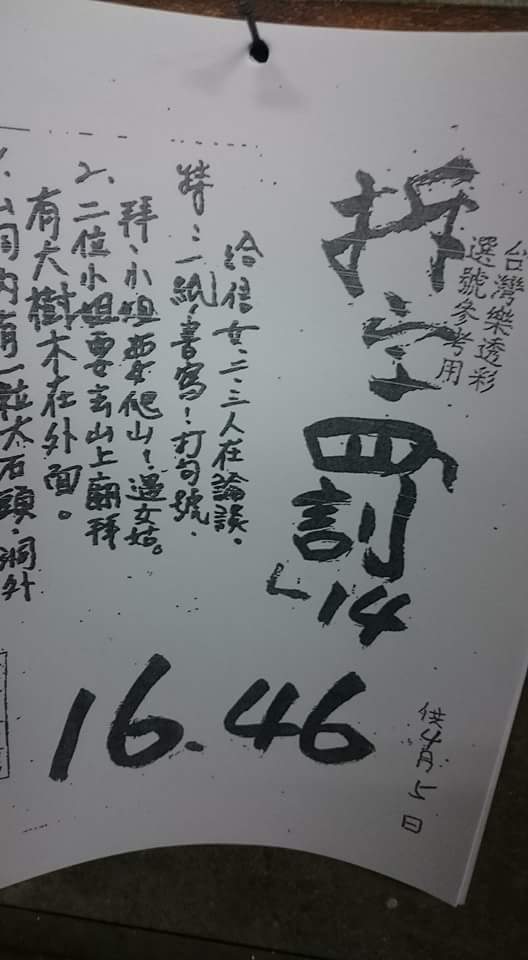 台灣樂透彩
選號參考用
拆字
罰
14
16.46
供4月5日
給信女、二、三人在論談。
特:一紙!書寫!打句號、
拜、小姐要爬山!過女姑。
2、二位小姐要去山上廟拜
有大樹木在外面。
內有一粒大石頭、洞外